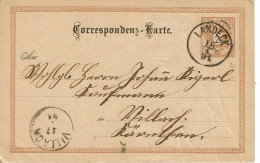 Correspondenz-Karte.
LANDECK
An
Wohlgb. Herrn Johann
Kaufmann
in Villach
Kärnthen.
VILLACH